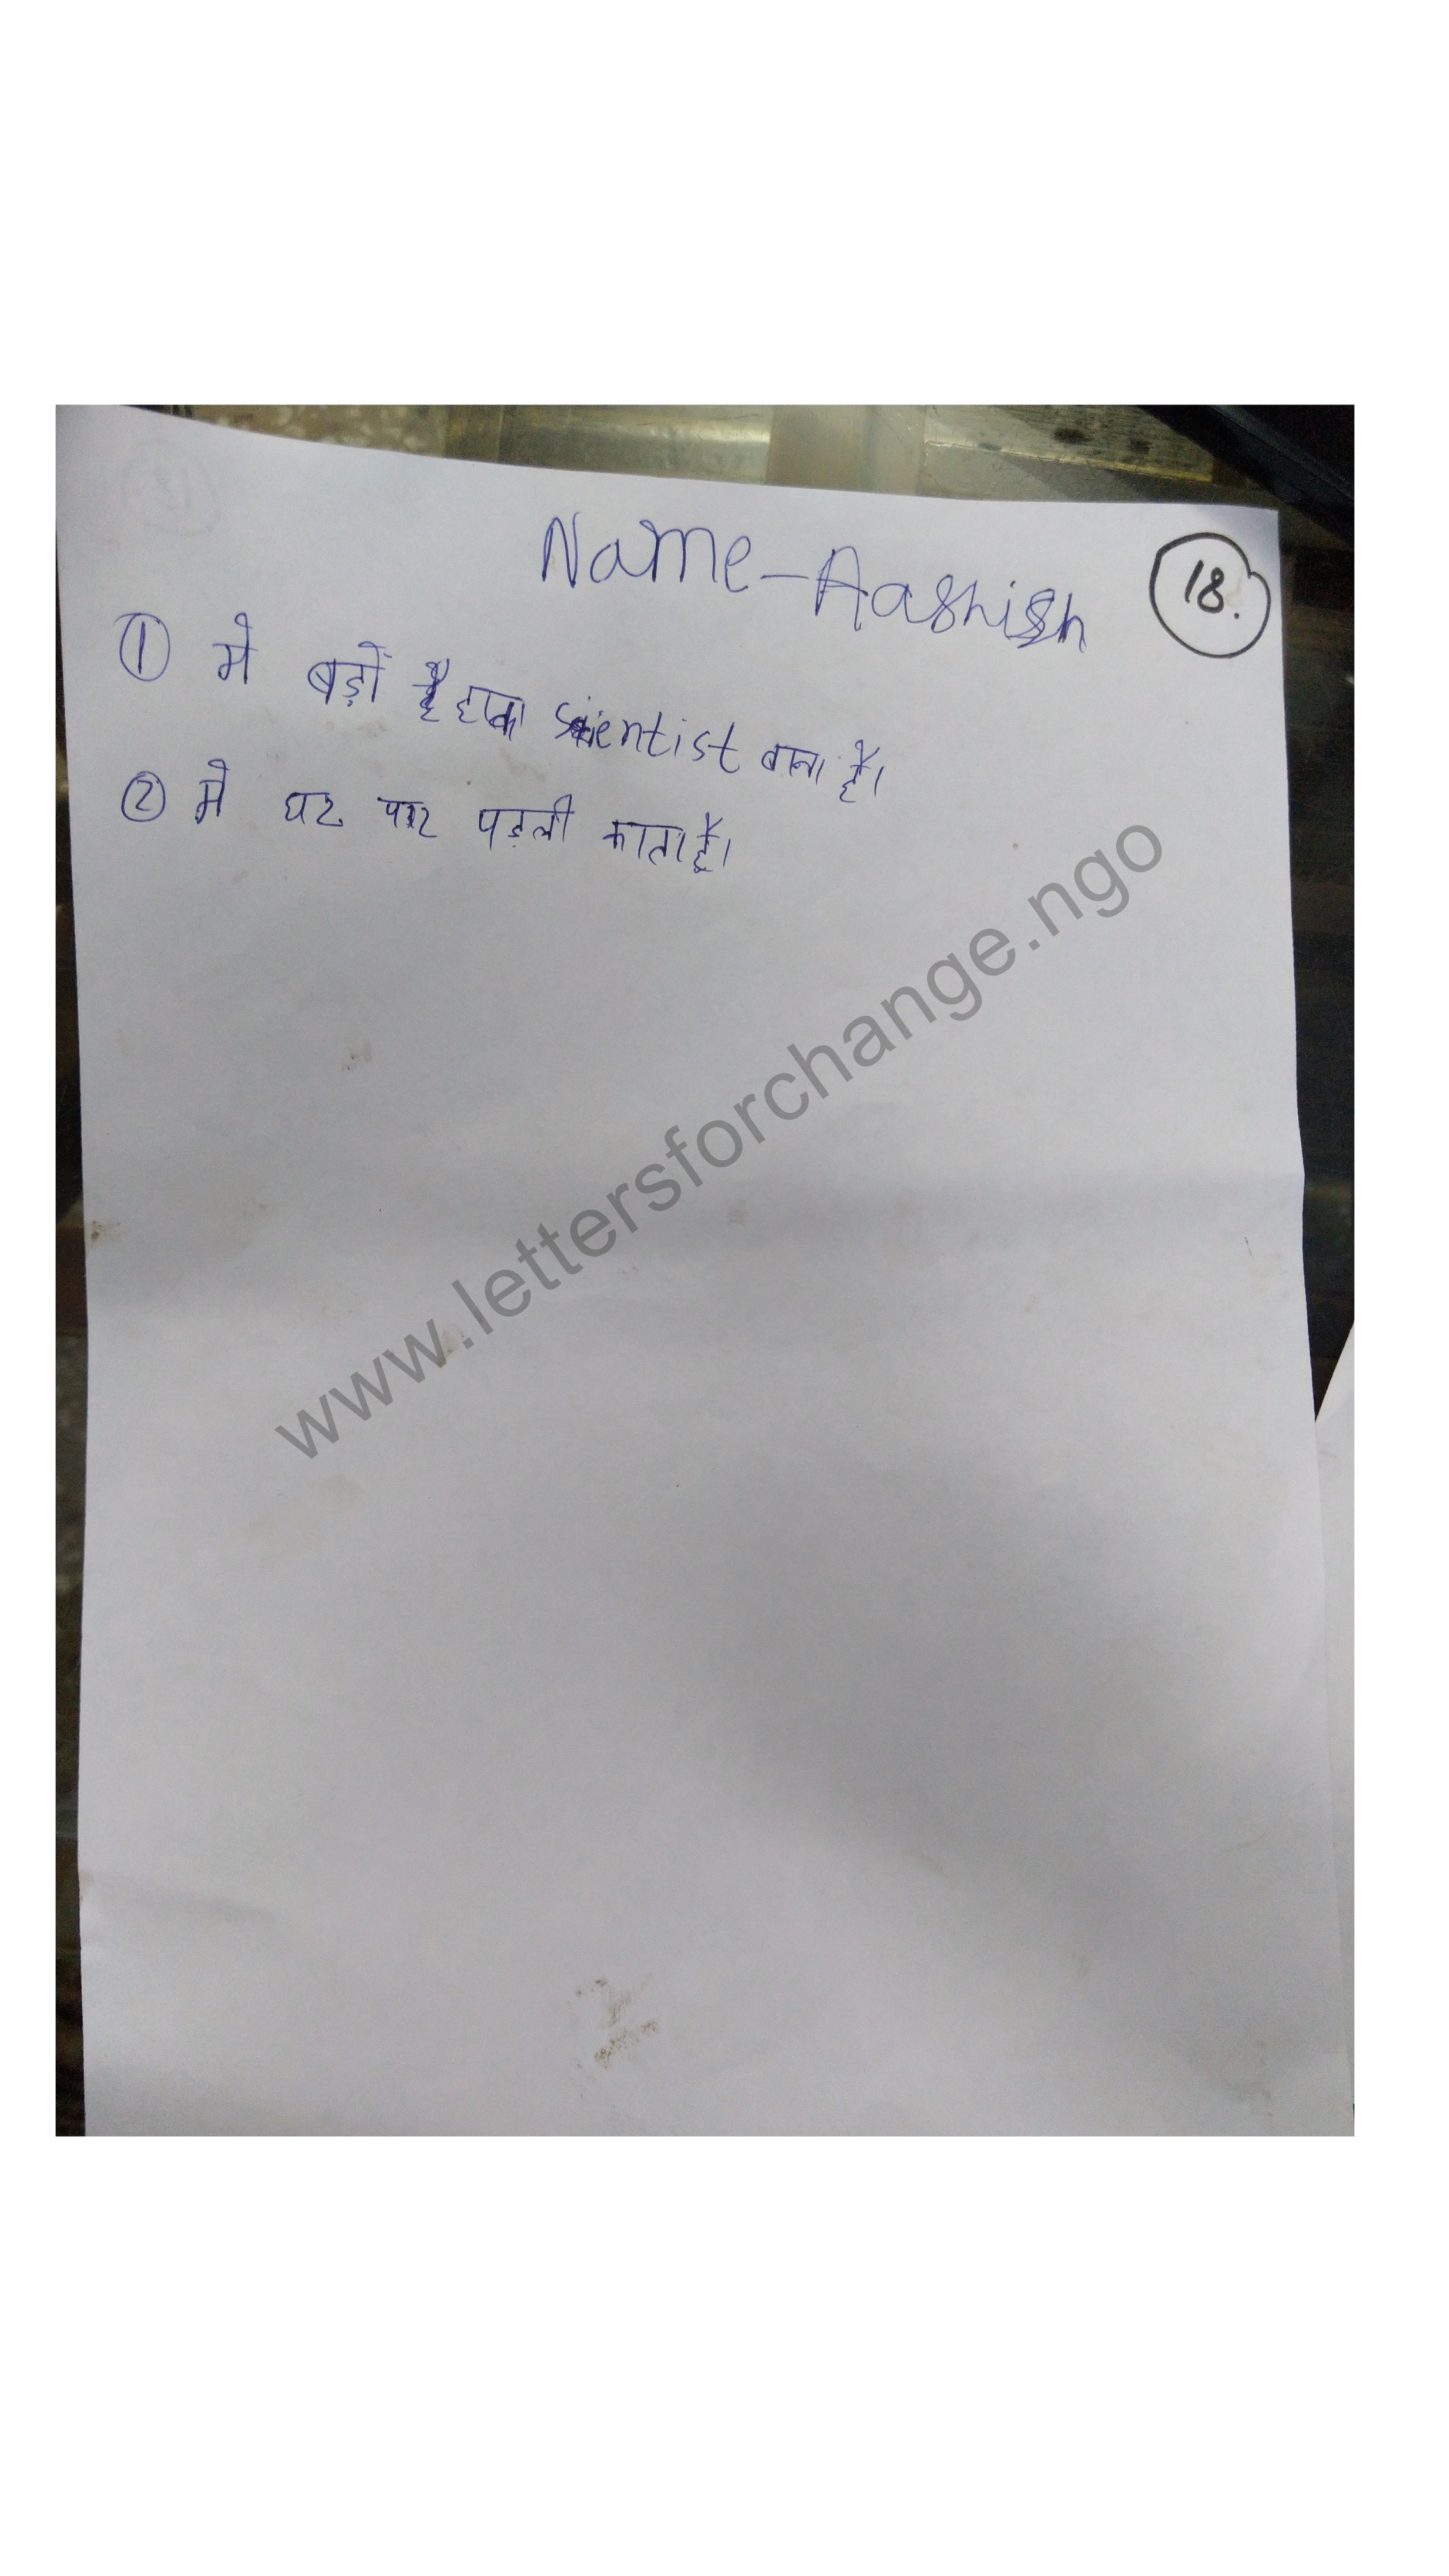 Name - Aashish
18.
① मे बड़ों scientist बाना है।
② मे घर पर पड़ली काता हूँ।
www.lettersforchange.ngo